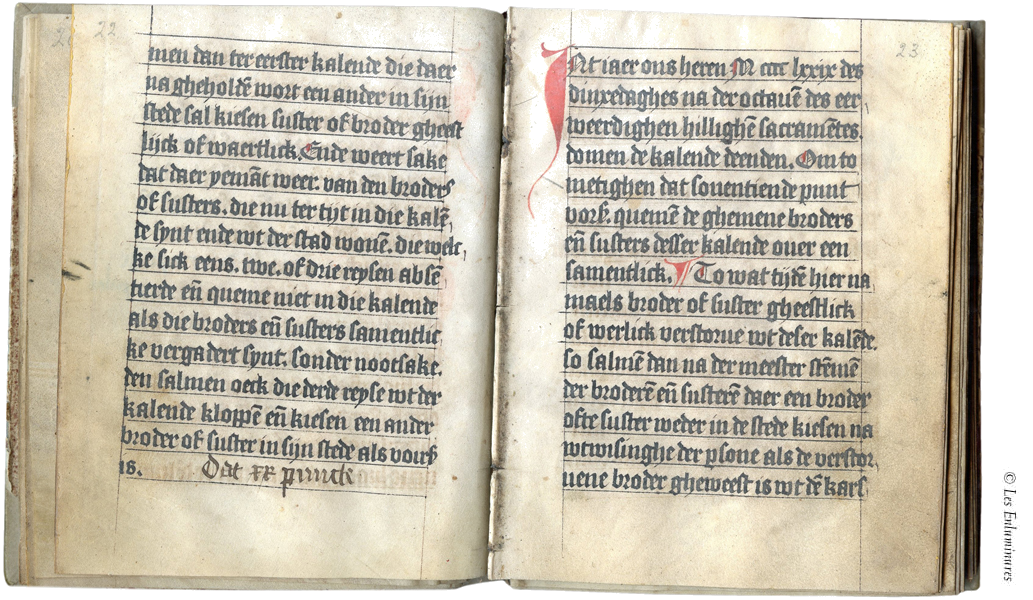 22
men dan ter eerster kalende die daer
na gheholdē wort een ander in sijn
stede sal kiesen suster of broder gheest
lijck of waertlick. Ende weert sake
dat daer yemāt weer. van den broders
of susters. die nu ter tijt in die kalē,
de synt ende wt der stad wonē. die welc,
ke sick eens. twe. of drie reysen absē
tierde eñ queme niet in die kalende
als die broders eñ susters samentlic
ke vergadert synt. sonder nootsake.
den salmen oeck die derde reyse wt der
kalende kloppē eñ kiesen een ander
broder of suster in sijn stede als vours
is. Dat xx punck
23
INt iaer ons heren M cccc lxxix des
dinxedaghes na der octauē des eer,
weerdighen hillighē sacramētes.
domen de kalende deenden. Om to
metighen dat souentiende punt
vors. quemē de ghemene broders
eñ susters desser kalende ouer een
samentlick. To wat tijdē hier na
maels broder of suster gheestlick
of werlick verstorue wt deser kalēde.
so salmē dan na der meester stēmē
der broderē eñ susterē daer een broder
ofte suster weder in de stede kiesen na
wtwisinghe der psone als de verstor,
uene broder gheweest is wt dē kars
© Les Enluminures